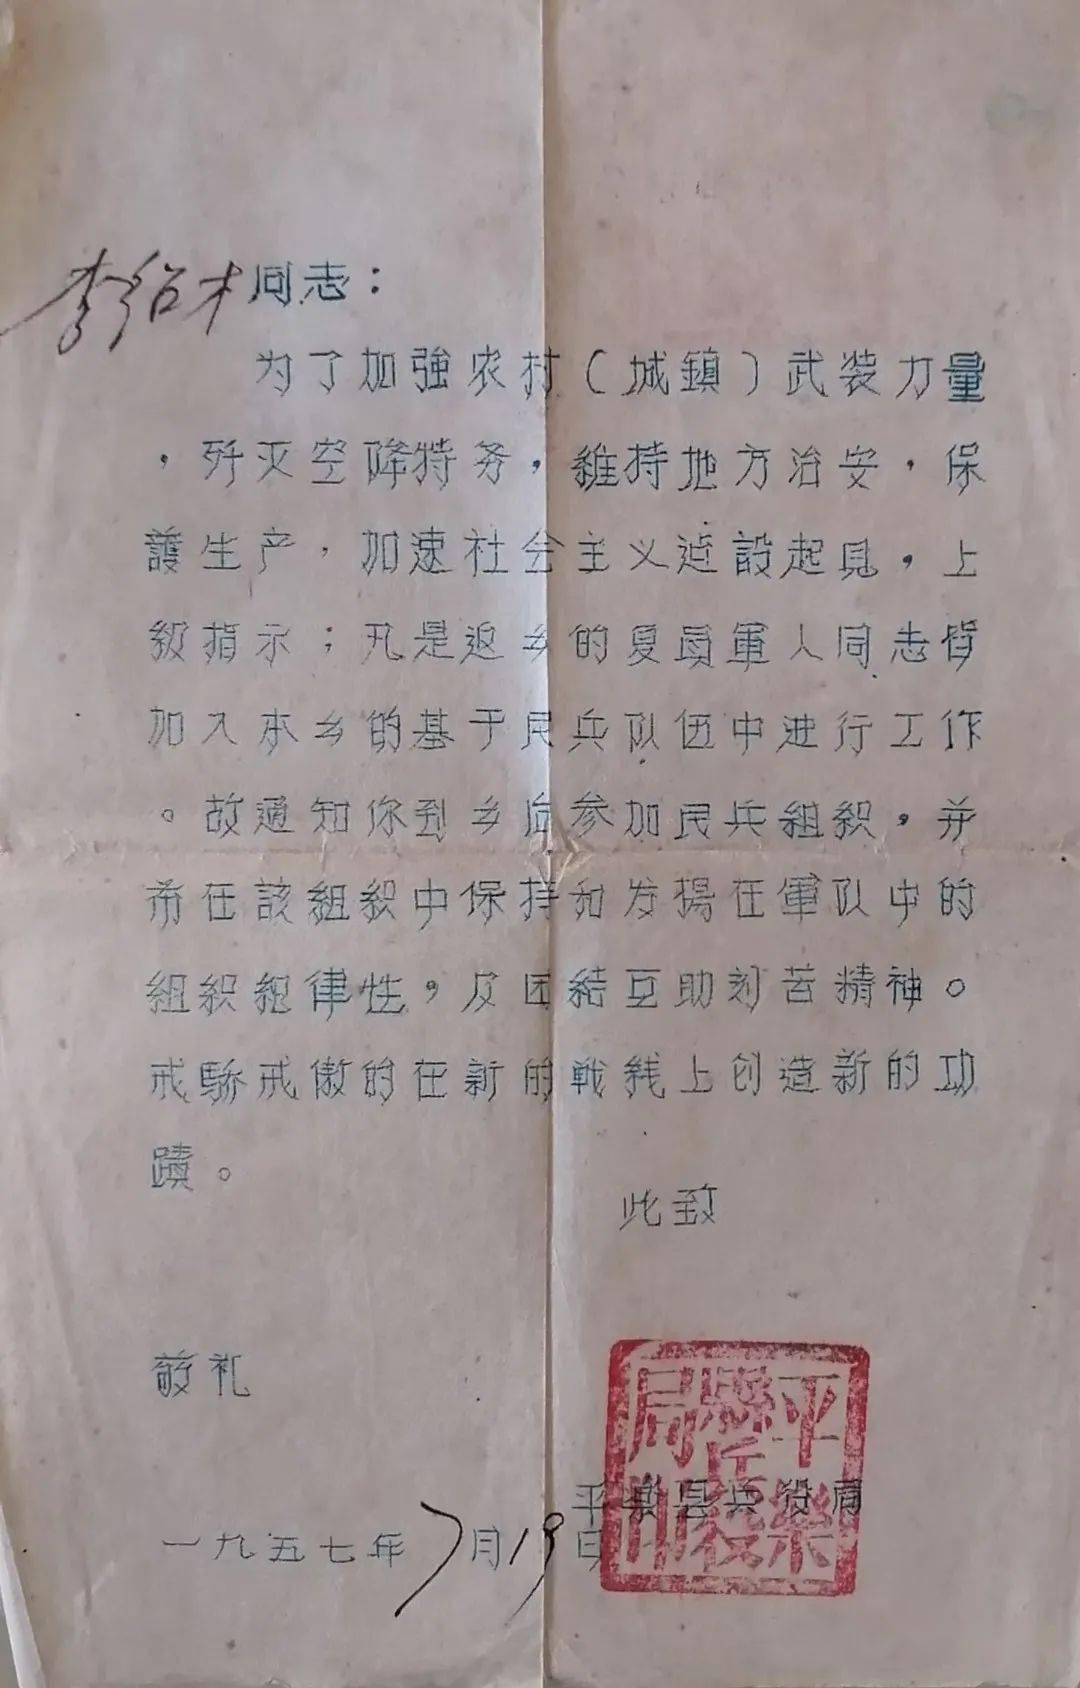 李绍才同志：
为了加強农村（城鎮）武装力量
，歼灭空降特务，維持地方治安，保
護生产，加速社会主义建設起見，上
級指示；凡是返乡的复員軍人同志皆
加入本乡的基干民兵队伍中进行工作
。故通知你到乡后参加民兵組織，并
希在該組織中保持和发揚在軍队中的
組織紀律性，及团結互助刻苦精神。
戒驕戒傲的在新的战綫上创造新的功
蹟。
此致
敬礼
平樂县兵役局
一九五七年7月19日
平樂縣兵役局印